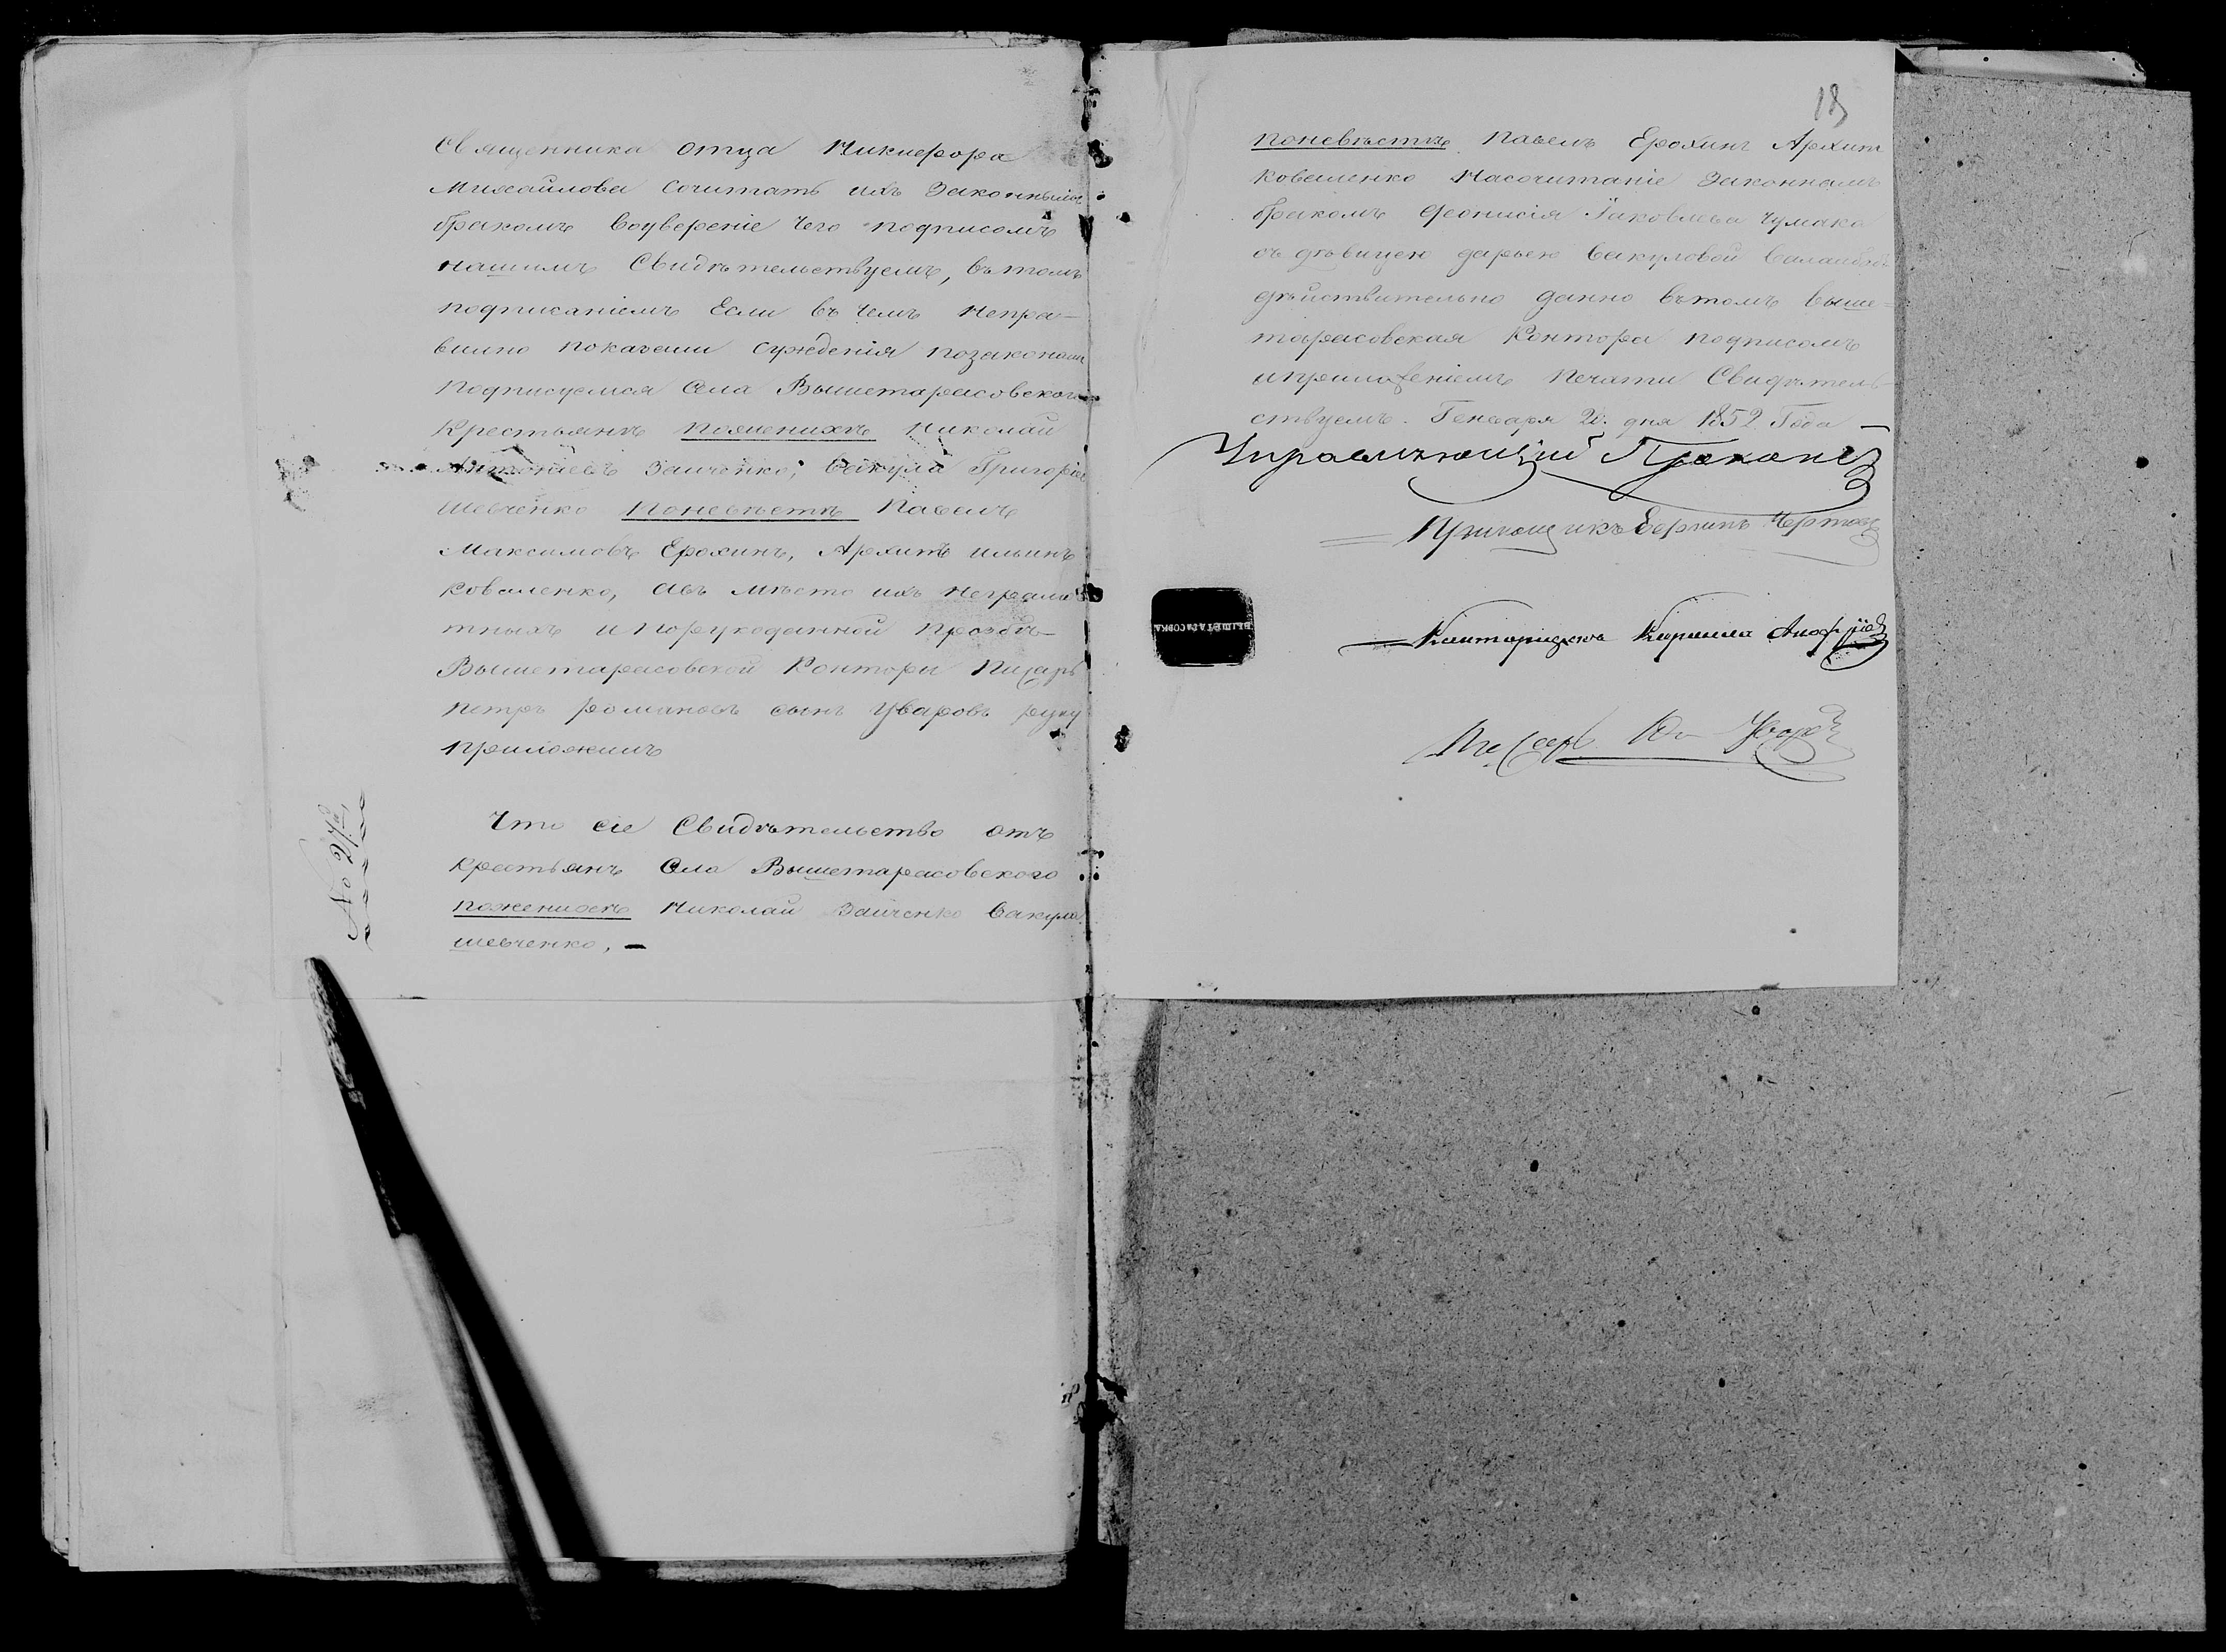 Священника отца Никифора
Михайлова Сочитать ихъ Законнымъ
бракомъ воуверенiе Чего подписомъ
нашимъ Свидѣтельствуемъ, въ томъ
подписанiемъ Если въ Чемъ Непра-
вилно показали Сужденiя позаконам
Подписуемся Села Вышетарасовского
Крестьянъ поженихѣ Николай
Антонiевъ Заиченко, Вакула Григорiевъ
Шевченко Поневѣстѣ Павелъ
Максимовъ Ерохинъ, Архипъ Ильинъ
Коваленко, Авъ мѣсто ихъ Неграмо
тныхъ и Порукоданной прозбѣ
Вышетарасовской Конторы Писарь
Петръ Романовъ сынъ Уваровъ руку
приложилъ
№ 27й
Что сiе Свидѣтельство отъ
Крестьянъ Села Вышетарасовского
поженихѣ Николай Заиченко Вакула
Шевченко, –
18
поневѣстѣ Павелъ Ерохинъ Архип
Коваленко Насочитанiе Законнымъ
бракомъ Феонисiя Iаковлева Чумака
съ дѣвицею дарьею Вакуловой
дѣйствительно данно вътомъ Выше-
тарасовская Контора подписомъ
иприложенiемъ Печати Свидѣтель-
ствуемъ. Генваря 20. дня 1852 Года –
Управляющiй
Прикащикъ
Конторщикъ Кирилла
Писарь Уваровъ
ВЫШЕТАРАСОВКА